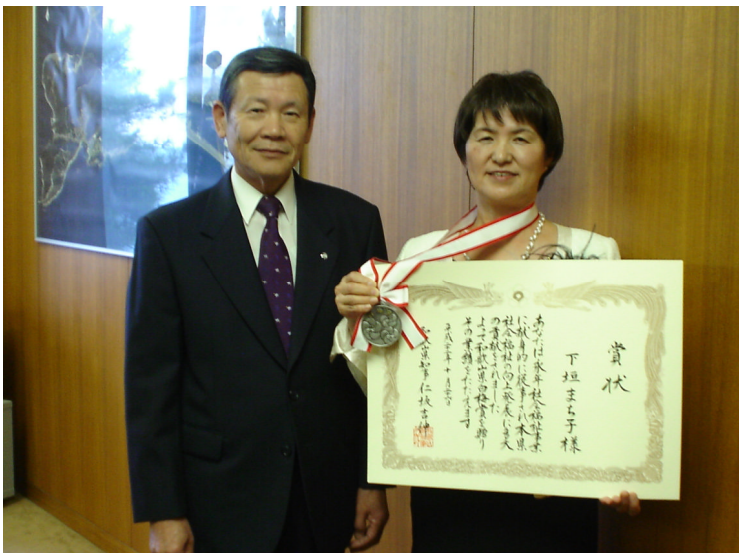 賞状
下垣まち子様
あなたは永年社会福祉事業
に献身的に従事され本県
社会福祉の向上発展に多大
の貢献をされました
よって和歌山県白梅賞を贈り
その業績をたたえます
平成 年十月
和歌山県知事 仁坂吉伸